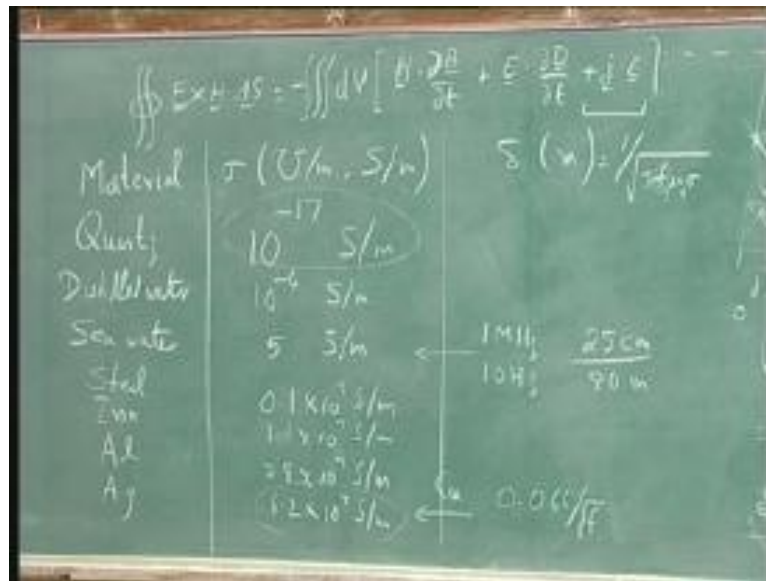 ∯ E×H·dS = -∭dV[ H·∂B/∂t + E·∂D/∂t + j·E ]
Material σ (℧/m, S/m) δ (m) = 1/√πfμσ
Quartz 10⁻¹⁷ S/m
Distilled water 10⁻⁴ S/m
Sea water 5 S/m ← 1MHz 25cm
10Hz 80 m
Steel 0.1×10⁷ S/m
Iron ×10⁷ S/m
Al ×10⁷ S/m
Ag 6.2×10⁷ S/m ← Cu 0.066/√f